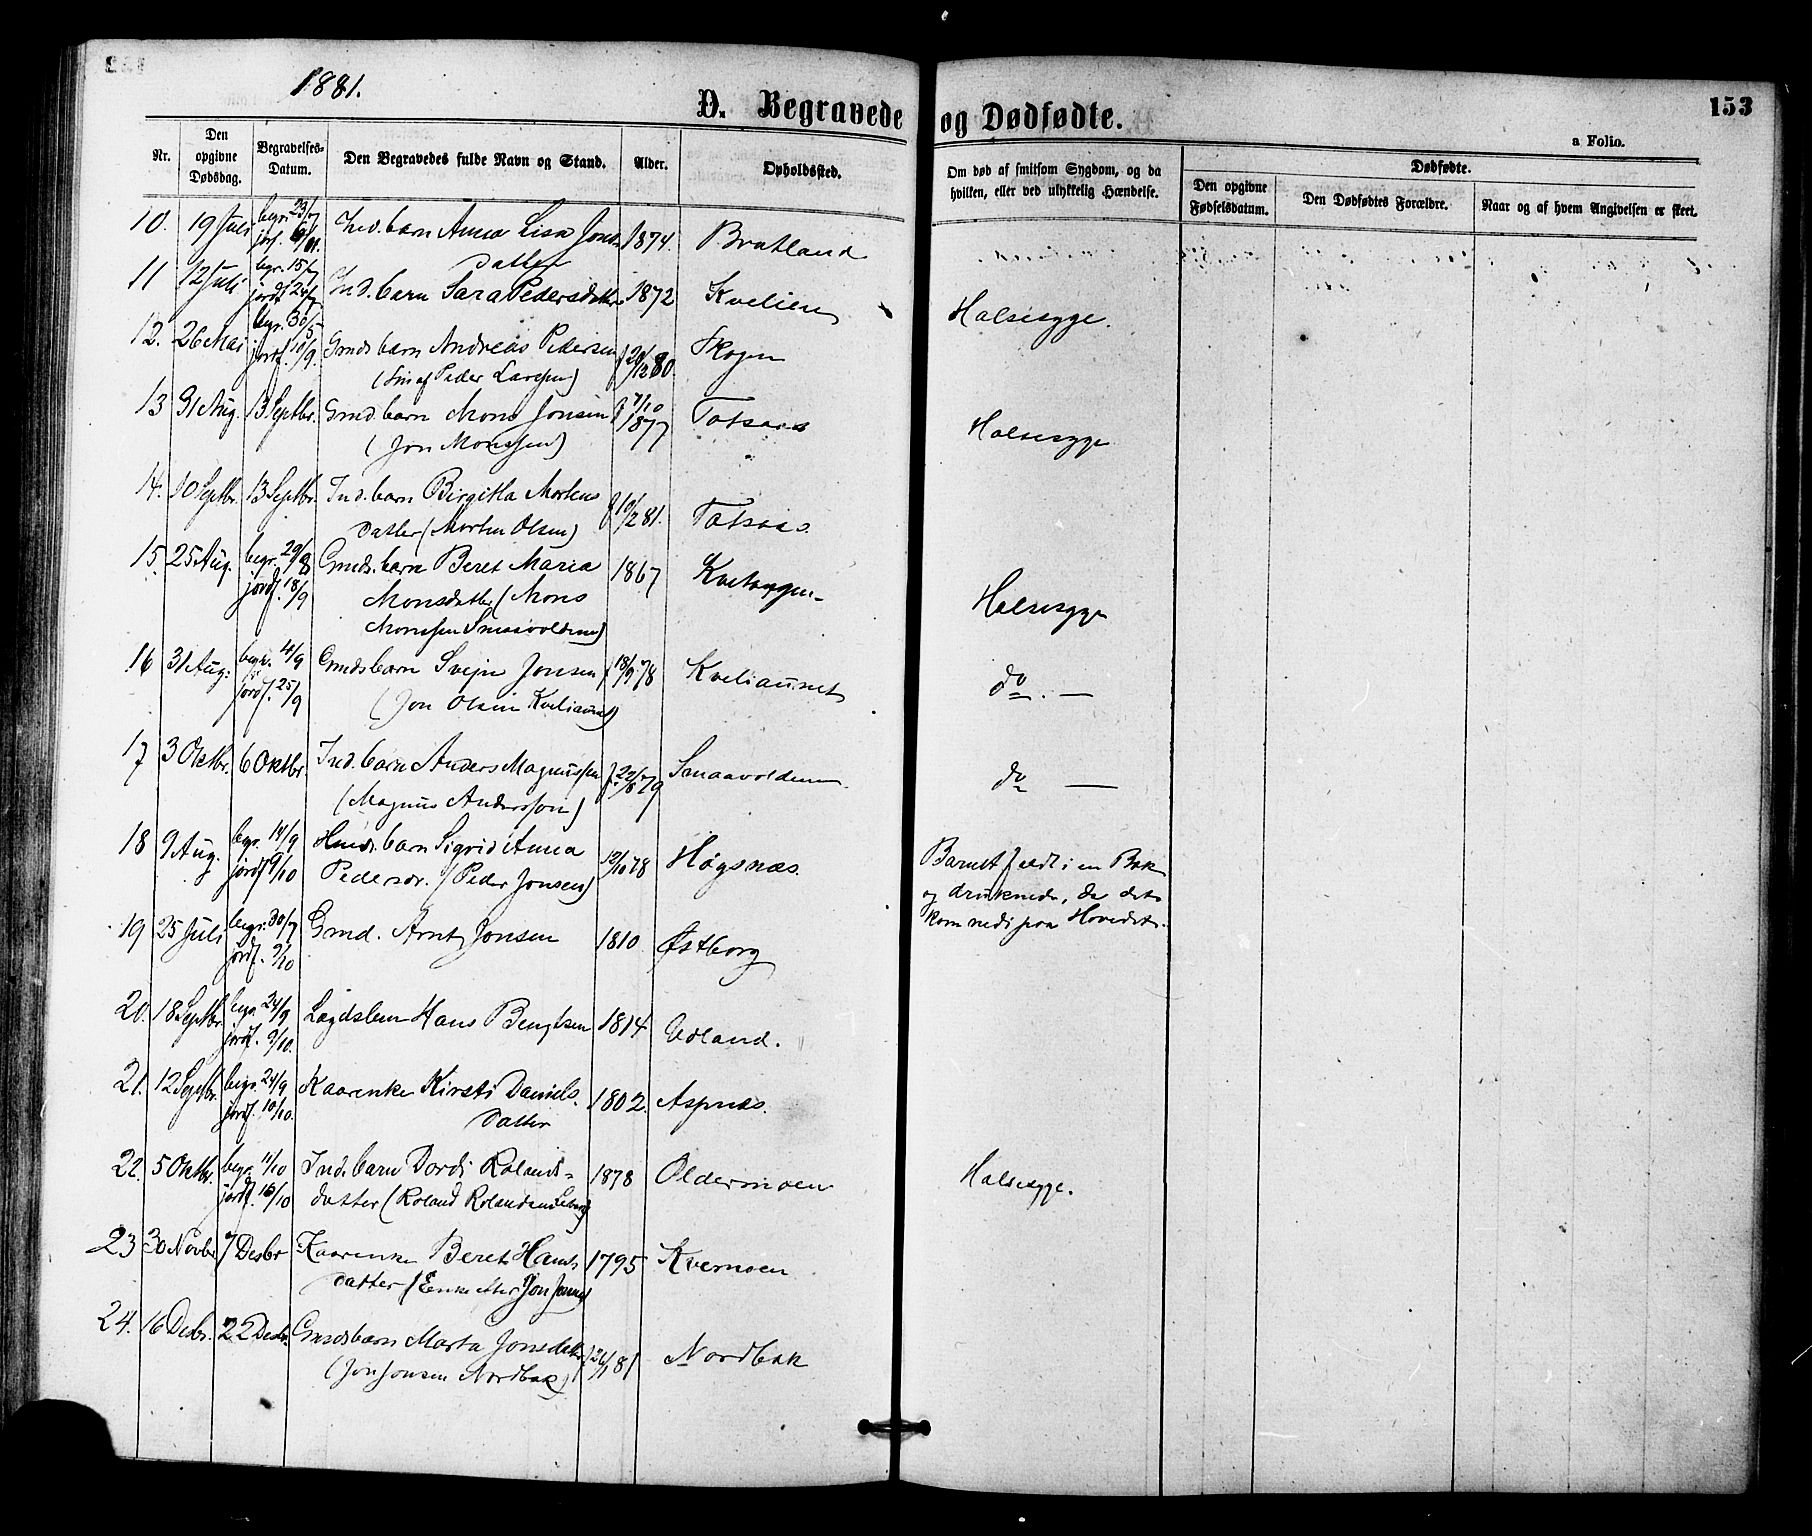 1881.
D. Begravede og Dødfødte.
153
a Folio.
Nr.
Den opgivne Dødsdag.
Begravelses-Datum.
Den Begravedes fulde Navn og Stand.
Alder.
Opholdssted.
Om død af smitsom Sygdom, og da hvilken, eller ved ulykkelig Hændelse.
Dødfødte.
Den opgivne Fødselsdatum.
Den Dødfødtes Forældre.
Naar og af hvem Angivelsen er skeet.
10. 19 Juli begr. 23/7 Ind. barn Anna Lisa Jons- 1874. Bratland
jordf.
datter
11 12 Juli begr. 15/7 Ind. barn Sara Pedersdatter 1872 Kvelien Halsesyge.
jordf. 24/7
12. 26 Mai begr. 30/5 Gmds barn Andreas Pedersen f 20/12 80. Skogen
jordf. 10/9. (Søn af Peder Larssen)
13 31 Aug. 13 Septbr. Gmd. barn Mons Jonsen f 7/10 1877 Totsaas Halsesyge
(Jon Monssen)
14. 10 Septbr. 13 Septbr. Ind. barn Birgitta Mortens f 10/2 81. Totsaas.
datter (Morten Olsen)
15. 25 Aug. begr. 29/8 Gmds. barn Beret Maria 1867 Halsesyge
jordf. 18/9 Monsdatter (Mons
Monssen Smaavolden)
16 31 Aug. begr. 4/9 Gmds barn Svejn Jonsen f 18/9 78 Kveliaunet do. —
jordf. 25/9 (Jon Olsen Kveliaunet)
17 3 Oktbr. 6 Oktbr. Ind. barn Anders Magnussen f. 22/8 79 Smaavolden do —
(Magnus Andersson)
18 9 Aug. begr. 14/9 barn Sigrid Anna 12/10 78 Høgsnæs. Barnet faldt i en Bæk
jordf 9/10 Pedersdr. (Peder Jonsen) og druknede, da det
kom nedi paa Hovedet.
19 25 Juli begr. 30/7 Gmd. Arnt Jonsen 1810. Østborg
jordf. 9/10
20. 18 Septbr. begr. 24/9 Lægdslem Hans Bengtsen 1814 Udland.
jordf. 9/10.
21. 12 Septbr. begr. 24/9 Kaarenke Kirsti Daniels- 1802. Aspnæs.
jordf. 10/10. datter
22. 5 Oktbr. begr. 11/10 Ind. barn Dordi Rolands- 1878 Oldermoen Halsesyge.
jordf. 16/10 datter (Roland Rolandsen)
23 30 Novbr 7 Desbr Kaarenke Beret Hans- 1795 Kvernoen
datter (Enke efter Jon Jonsen)
24. 16 Desbr. 22 Desbr. Gmdsbarn Marta Jonsdatter 81 Nordbæk
(Jon Jonsen Nordbæk)